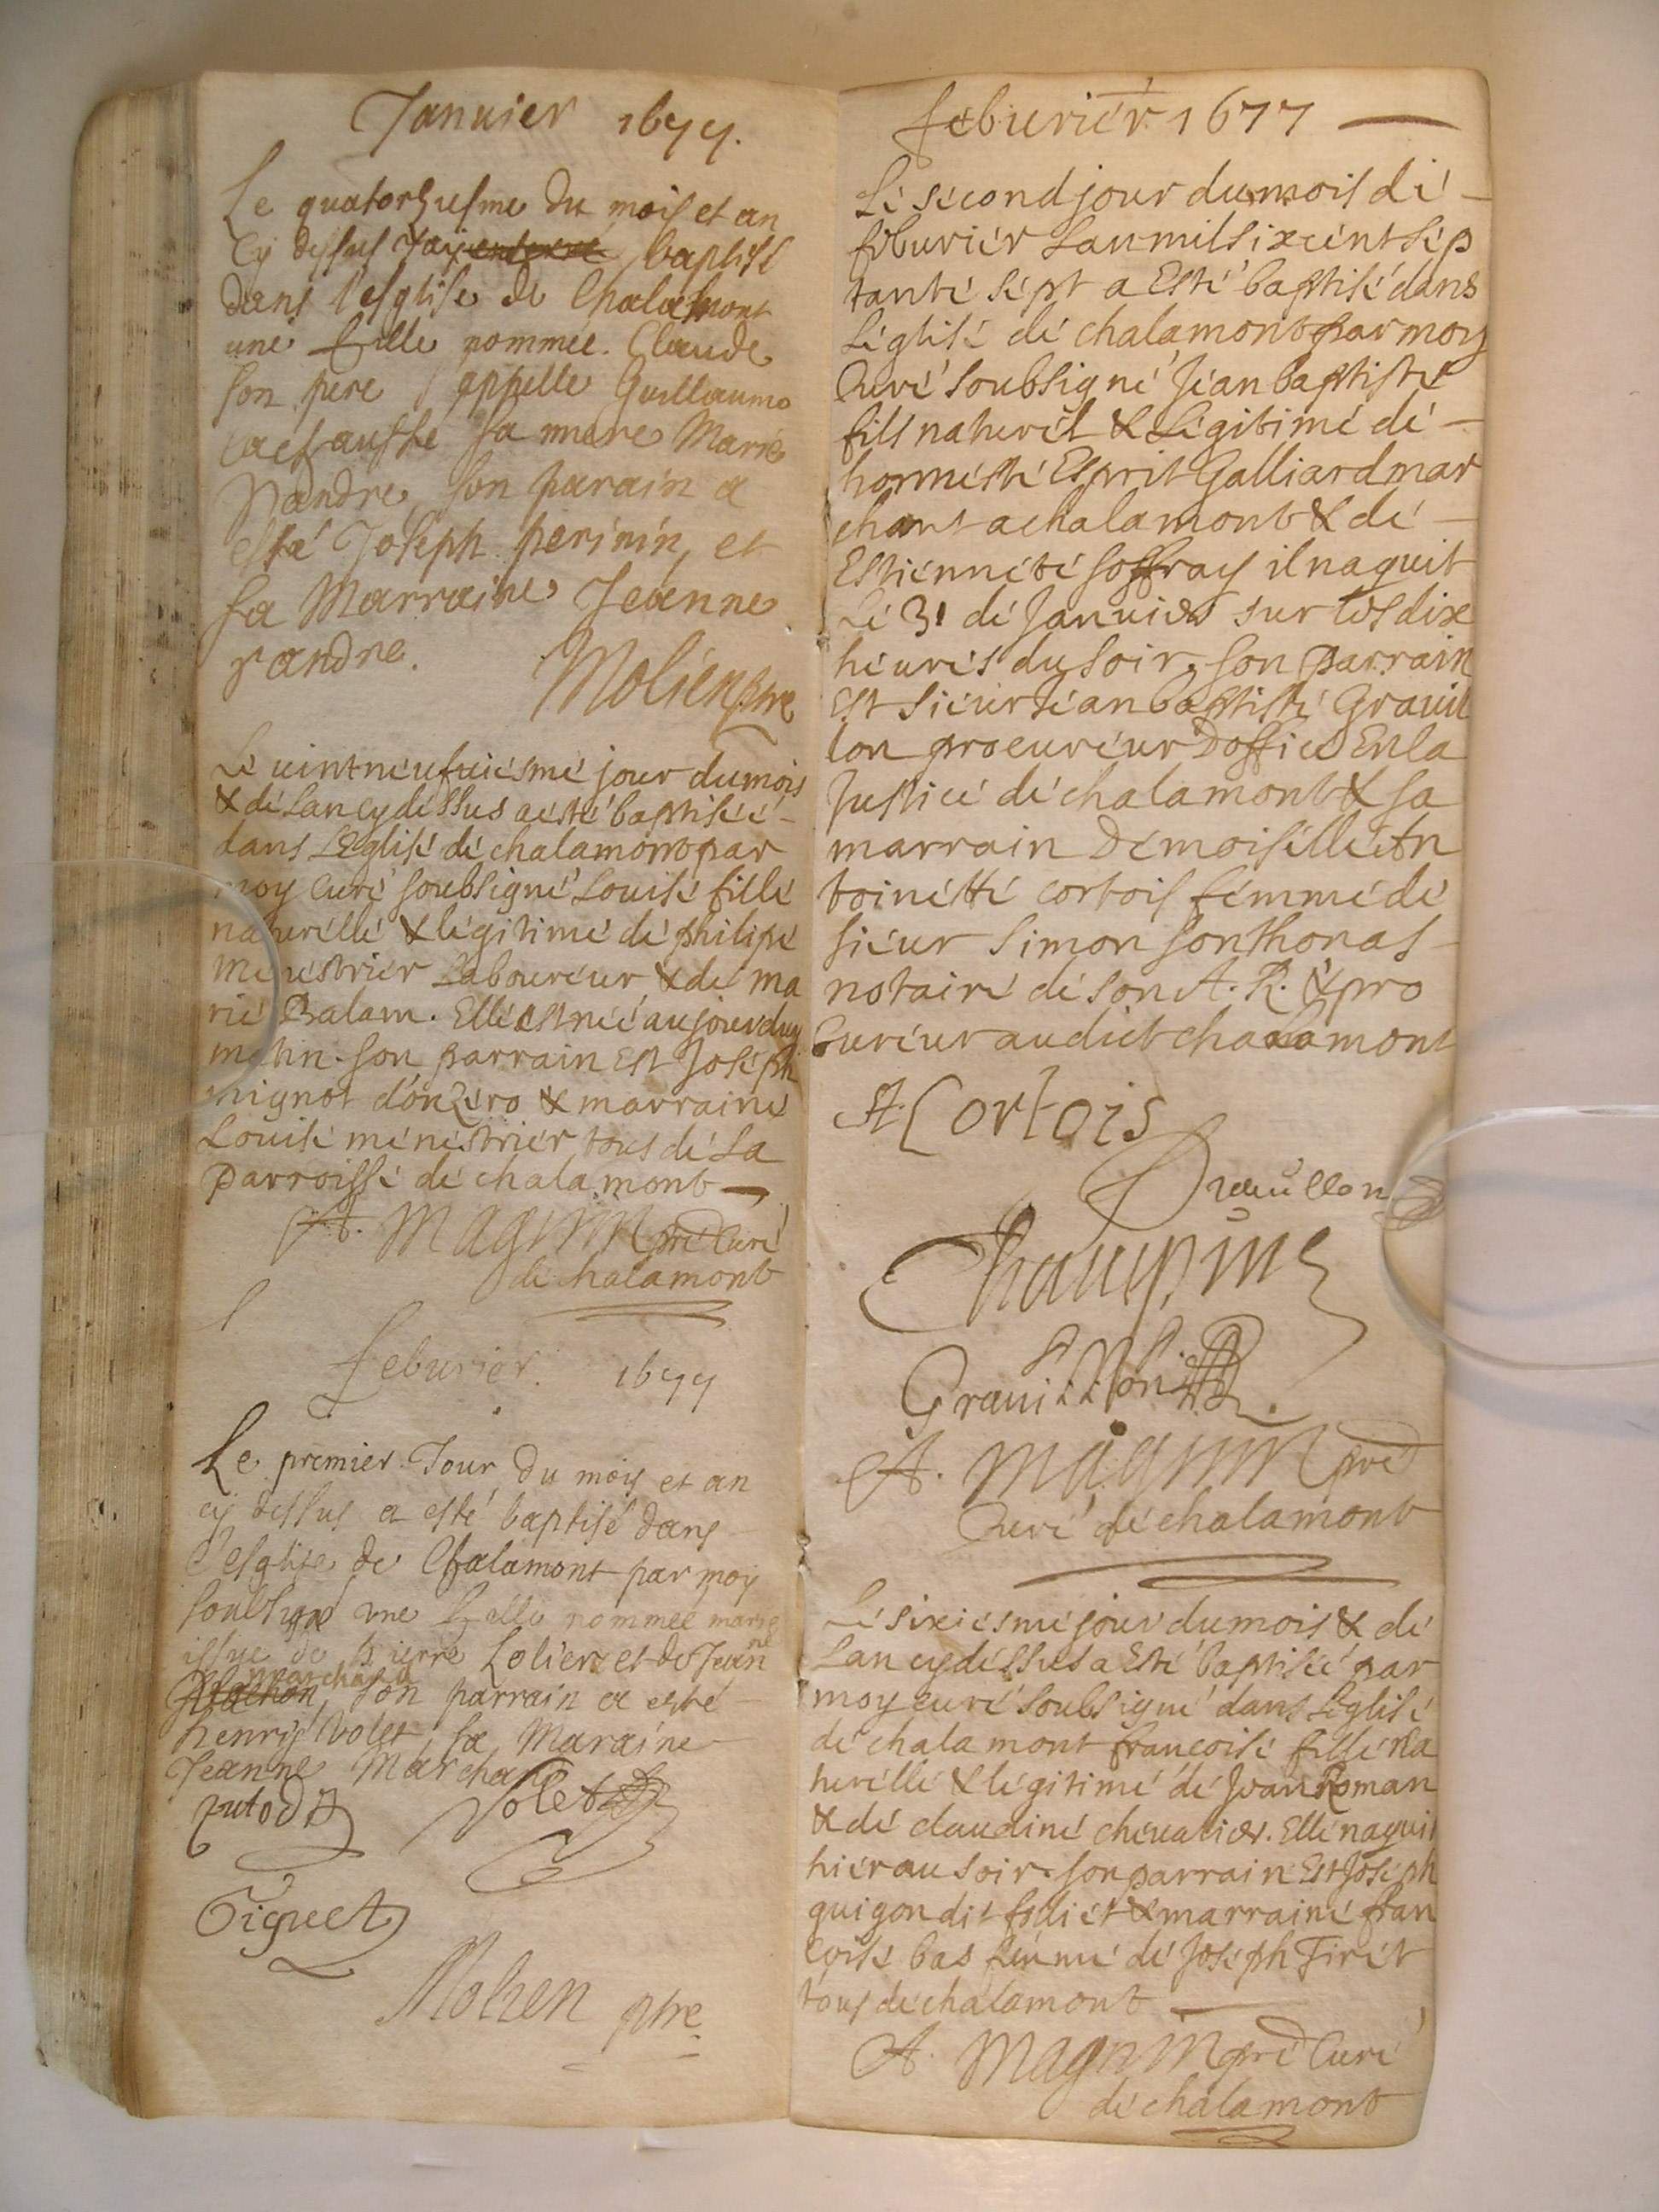 Januier 1677.
Le quatorziesme du mois et an
Cy dessus J'ay enterré baptisé
dans l'esglise de Chalamont
une fille nommée Claude
son pere s'appelle Guillaume
sa mere Marie
Pandre, son parain a
esté Joseph perinin, et
sa Marraine Jeanne
pandre.
Molien pre
Le uintneufuiesme jour dumois
& de Lan cy dessus a esté baptiséé
dans Léglise de chalamont par
moy Curé soubsigné Louise fille
naturelle & légitime de philipe
menestrier Laboureur & de ma
rie Balam. Elle est née aujourduy
matin. son parrain Est Joseph
mignot donzero & marraine
Louise menestrier tous de La
parroisse de chalamont
A. Magnin pre Curé
de chalamont
feburier. 1677
Le premier Jour du mois et an
cy dessus a esté baptisé dans
l'esglise de Chalamont par moy
soubsigné une fille nommée marie
issue de pierre Lolier et de Jeanne
marchand
son parrain a esté
henry Volet, sa Maraine
Jeanne Marchand
Volet
Tiguet
Molien ptre
feburier 1677
Le second jour dumois de
feburier Lan mil six cent sep
tante sept a Esté baptisé dans
Léglise de chalamont par moy
Curé soubsigné Jean baptiste
fils naturel & Légitime de
honneste Esprit Galliard mar
chant a chalamont & de
Estiennete soffray il naquit
Le 31 de Januier sur les dix
heures du soir, son parrain
Est sieur Jean baptiste Grauil
lon procureur Doffice En la
Justice de chalamont & sa
marrain Demoiselle An
toinette cortois femme de
sieur simon sonthonas
notaire de son A. R. & pro
Cureur audict chalamont
A. Cortois
Champin
Grauillon
A. Magnin pre
Curé de chalamont
Le sixiesme jour dumois & de
Lan cy dessus a Esté baptiséé par
moy curé soubsigné dans Léglise
de chalamont francoise fille na
turelle & légitime de Jean Roman
& de claudine cheualier. Elle naquit
hier au soir. son parrain Est Joseph
guigon dit foliet & marraine fran
coise bas femme de Joseph Firet
tous de chalamont
A. Magnin pre Curé
de chalamont